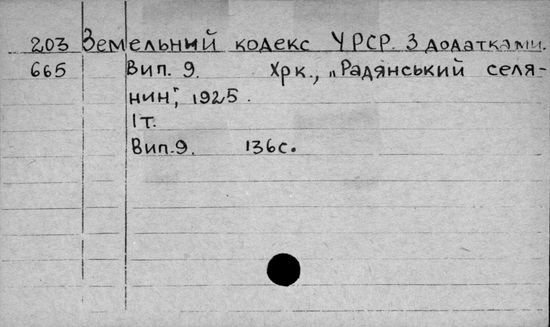 203 Земельный кодекс УРСР. З додатками.
665 Вип. 9. Хрк., „Радянський селя-
нин", 1925.
1т.
Вип.9. 136с.